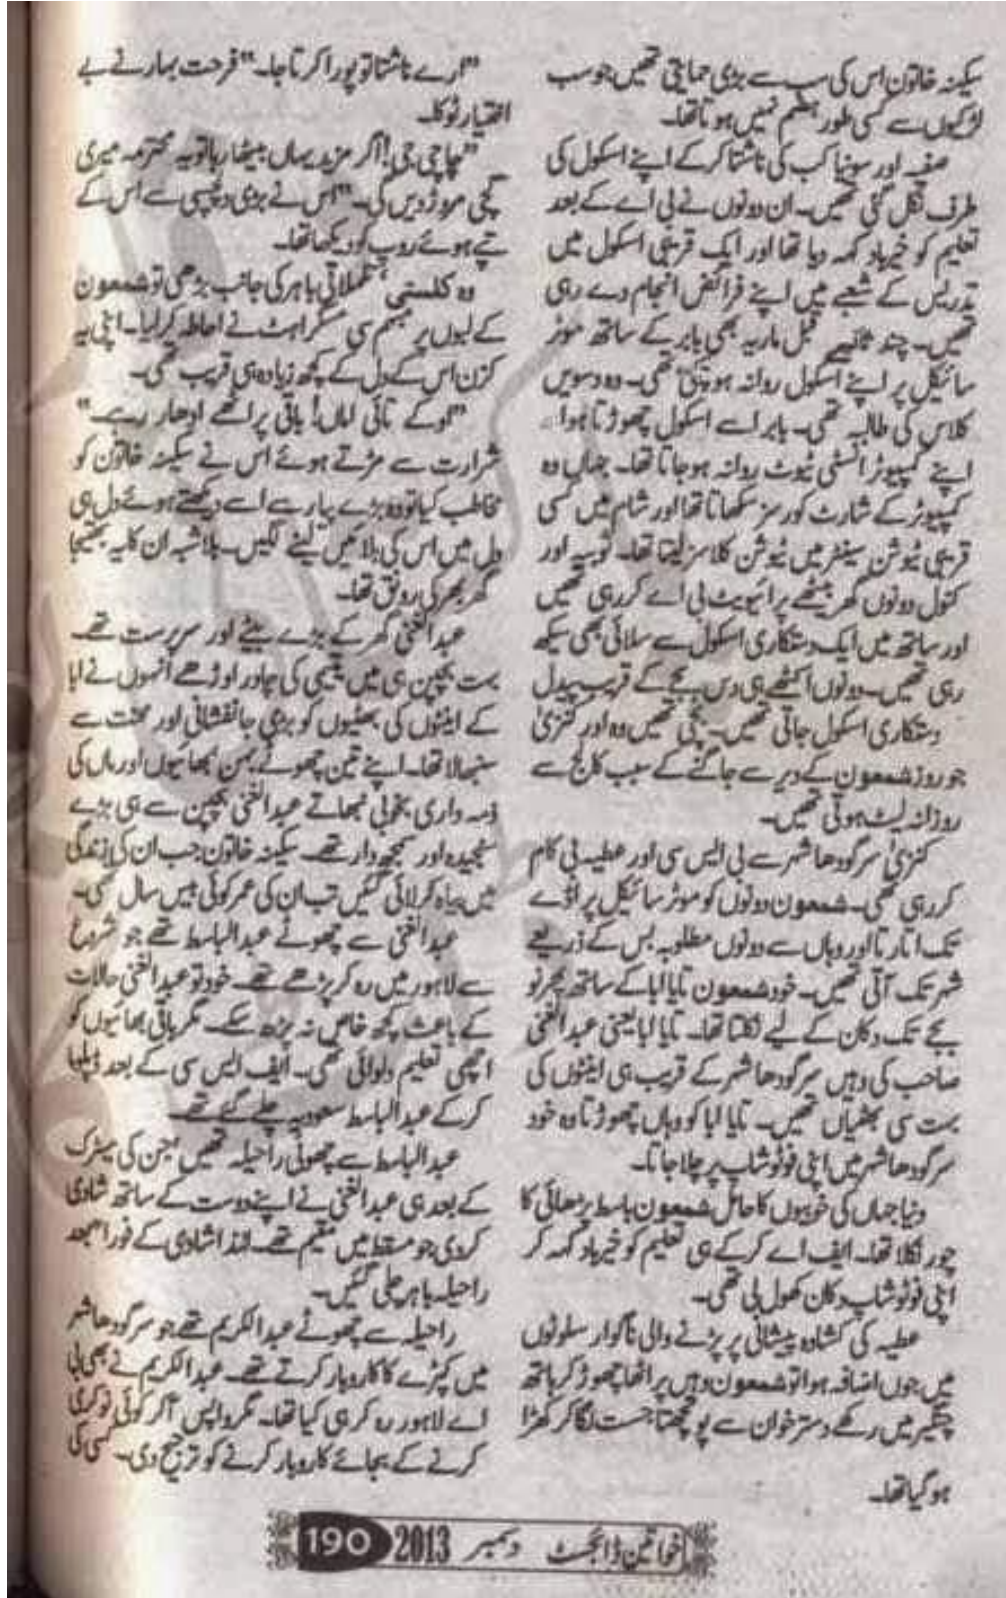 سکینہ خاتون اس کی سب سے بڑی حمایتی تھیں جو سب
لڑکیوں سے کسی طور ہضم نہیں ہوتا تھا۔
صفیہ اور سونیا کب کی ناشتا کر کے اپنے اسکول کی
طرف نکل گئی تھیں۔ ان دونوں نے بی اے کے بعد
تعلیم کو خیرباد کہہ دیا تھا اور ایک قریبی اسکول میں
تدریس کے شعبے میں اپنے فرائض انجام دے رہی
تھیں۔ چند ثانیے قبل ماریہ بھی بابر کے ساتھ موٹر
سائیکل پر اپنے اسکول روانہ ہو چکی تھی۔ وہ دسویں
کلاس کی طالبہ تھی۔ بابر اسے اسکول چھوڑتا ہوا
اپنے کمپیوٹر انسٹی ٹیوٹ روانہ ہو جاتا تھا۔ جہاں وہ
کمپیوٹر کے شارٹ کورسز سکھاتا تھا اور شام میں کسی
قریبی ٹیوشن سینٹر میں ٹیوشن کلاسز لیتا تھا۔ ثوبیہ اور
کنول دونوں گھر بیٹھے پرائیویٹ بی اے کر رہی تھیں
اور ساتھ میں ایک دستکاری اسکول سے سلائی بھی سیکھ
رہی تھیں۔ دونوں اکٹھے ہی دس بجے کے قریب پیدل
دستکاری اسکول جاتی تھیں۔ بچی تھیں وہ اور کنزیٰ
جو روز شمعون کے دیر سے جاگنے کے سبب کالج سے
روزانہ لیٹ ہوتی تھیں۔
کنزیٰ سرگودھا شہر سے بی ایس سی اور عطیہ بی کام
کر رہی تھی۔ شمعون دونوں کو موٹر سائیکل پر اڈے
تک اتارتا اور وہاں سے دونوں مطلوبہ بس کے ذریعے
شہر تک آتی تھیں۔ خود شمعون تایا ابا کے ساتھ پھر نو
بجے تک دکان کے لیے نکلتا تھا۔ تایا ابا یعنی عبدالغنی
صاحب کی وہیں سرگودھا شہر کے قریب ہی اینٹوں کی
بہت سی بھٹیاں تھیں۔ تایا ابا کو وہاں چھوڑتا وہ خود
سرگودھا شہر میں اپنی فوٹو شاپ پر چلا جاتا۔
دنیا جہاں کی خوبیوں کا حامل شمعون باسط پڑھائی کا
چور نکلا تھا۔ ایف اے کر کے ہی تعلیم کو خیرباد کہہ کر
اپنی فوٹو شاپ دکان کھول لی تھی۔
عطیہ کی کشادہ پیشانی پر پڑنے والی ناگوار سلوٹوں
میں جوں اضافہ ہوا تو شمعون وہیں پراٹھا چھوڑ کر ہاتھ
چنگیر میں رکھے دسترخوان سے پونچھتا جست لگا کر کھڑا
ہو گیا تھا۔
"ارے ناشتا تو پورا کرتا جا۔" فرحت بہار نے بے
اختیار ٹوکا۔
"چاچی جی! اگر مزید یہاں بیٹھا رہا تو یہ محترمہ میری
گچی مروڑ دیں گی۔" اس نے بڑی دلچسپی سے اس کے
تپے ہوئے روپ کو دیکھا تھا۔
وہ کلستی تلملاتی باہر کی جانب بڑھی تو شمعون
کے لبوں پر مبہم سی مسکراہٹ نے احاطہ کر لیا۔ اپنی یہ
کزن اس کے دل کے کچھ زیادہ ہی قریب تھی۔
"اوکے تائی اماں! باقی پراٹھے ادھار رہے۔"
شرارت سے مڑتے ہوئے اس نے سکینہ خاتون کو
مخاطب کیا تو وہ بڑے پیار سے اسے دیکھتے ہوئے دل ہی
دل میں اس کی بلائیں لینے لگیں۔ بلاشبہ ان کا یہ بھتیجا
گھر بھر کی رونق تھا۔
عبدالغنی گھر کے بڑے بیٹے اور سرپرست تھے۔
بہت بچپن ہی میں یتیمی کی چادر اوڑھے انہوں نے ابا
کے اینٹوں کی بھٹیوں کو بڑی جانفشانی اور محنت سے
سنبھالا تھا۔ اپنے تین چھوٹے بہن بھائیوں اور ماں کی
ذمہ داری بخوبی نبھاتے عبدالغنی بچپن سے ہی بڑے
سنجیدہ اور سمجھ دار تھے۔ سکینہ خاتون جب ان کی زندگی
میں بیاہ کر لائی گئیں تب ان کی عمر کوئی بیس سال تھی۔
عبدالغنی سے چھوٹے عبدالباسط تھے جو شروع
سے لاہور میں رہ کر پڑھے تھے۔ خود تو عبدالغنی حالات
کے باعث کچھ خاص نہ پڑھ سکے۔ مگر باقی بھائیوں کو
اچھی تعلیم دلوائی تھی۔ ایف ایس سی کے بعد ڈپلوما
کر کے عبدالباسط سعودیہ چلے گئے تھے۔
عبدالباسط سے چھوٹی راحیلہ تھیں جن کی میٹرک
کے بعد ہی عبدالغنی نے اپنے دوست کے ساتھ شادی
کر دی جو مسقط میں مقیم تھے۔ لہٰذا شادی کے فورا" بعد
راحیلہ باہر چلی گئیں۔
راحیلہ سے چھوٹے عبدالکریم تھے جو سرگودھا شہر
میں کپڑے کا کاروبار کرتے تھے۔ عبدالکریم نے بھی بی
اے لاہور رہ کر ہی کیا تھا۔ مگر واپس آ کر کوئی نوکری
کرنے کے بجائے کاروبار کرنے کو ترجیح دی۔ کسی کی
خواتین ڈائجسٹ دسمبر 2013 190